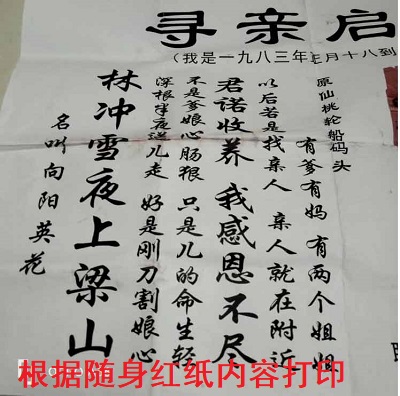 寻亲启
(我是一九八三年正月十八到
原仙桃轮船码头
有爹有妈 有两个姐姐
以后若是找亲人 亲人就在附近
君诺收养 我感恩不尽
不是爹娘心肠狠 只是儿的命生轻
深根半夜送儿走 好是刚刀割娘心
林冲雪夜上梁山
名叫向阳英花
根据随身红纸内容打印